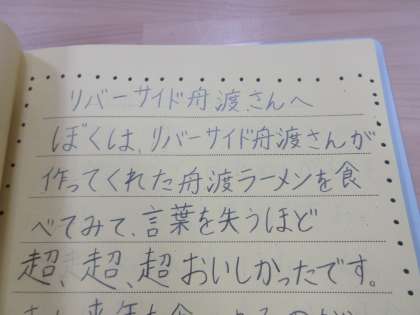 リバーサイド舟渡さんへ
ぼくは、リバーサイド舟渡さんが
作ってくれた舟渡ラーメンを食
べてみて、言葉を失うほど
超、超、超おいしかったです。